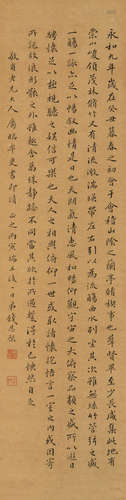 永和九年歲在癸丑暮春之初會于會稽山陰之蘭亭修禊事也羣賢畢至少長咸集此地有
崇山峻領茂林脩竹又有清流激湍暎帶左右引以為流觴曲水列坐其次雖無絲竹管弦之盛
一觴一詠亦足以暢敘幽情是日也天朗氣清惠風和暢仰觀宇宙之大俯察品類之盛所以遊目
騁懷足以極視聽之娛信可樂也夫人之相與俯仰一世或取諸懷抱悟言一室之內或因寄
所託放浪形骸之外雖趣舍萬殊靜躁不同當其欣於所遇暫得於己快然自足
老兄大人屬臨率更書即請
正之丙寅端五後一日弟錢